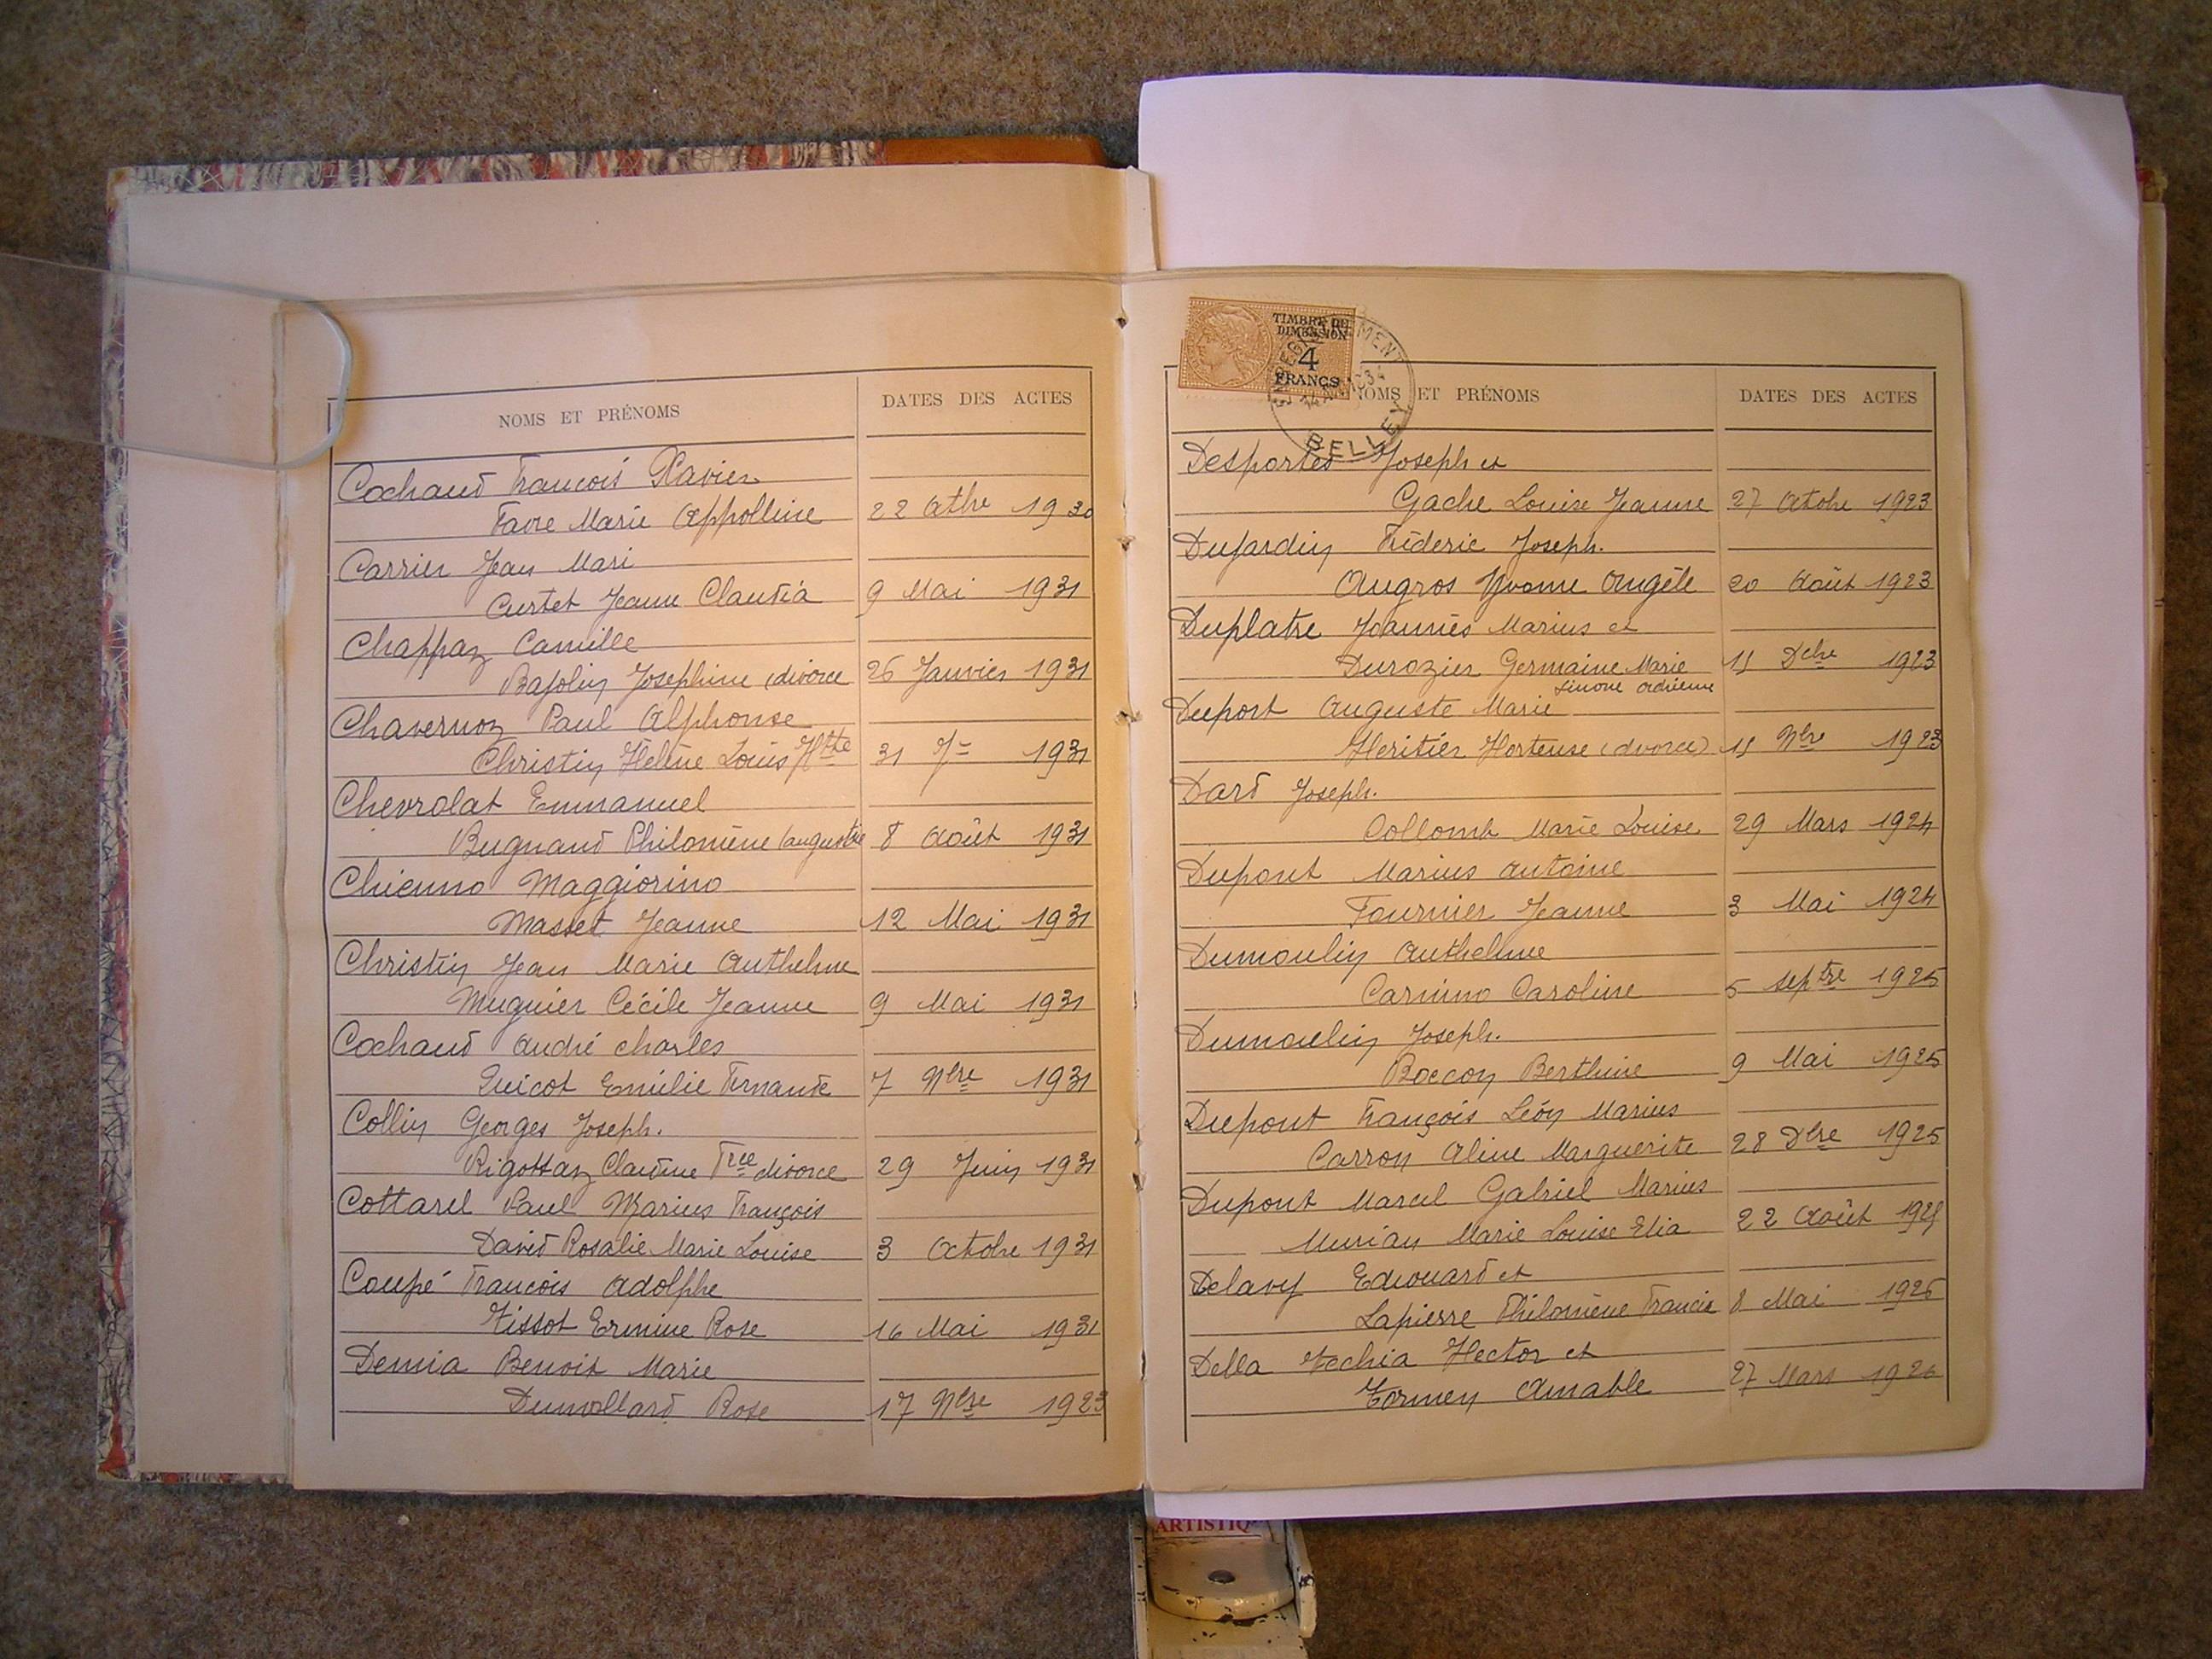 NOMS ET PRÉNOMS
DATES DES ACTES
Cochaud François Xavier
Favre Marie Appolline 22 8thre 1930
Carrier Jean Mari
Curtet Jeanne Claudia 9 Mai 1931
Chappaz Camille
Bajolin Josephine (divorce 26 Janvier 1931
Chavernoz Paul Alphonse
Christin Hélène Louis Htte 31 Jr 1931
Chevrolat Emmanuel
Bugnand Philomène (augustine 8 Août 1931
Chienno Maggiorino
Masset Jeanne 12 Mai 1931
Christin Jean Marie Anthelme
Muguier Cécile Jeanne 9 Mai 1931
Cochaud André Charles
Quicot Emélie Fernande 7 Nbre 1931
Collin Georges Joseph.
Rigottaz Claudine Frce divorce 29 Juin 1931
Cottarel Paul Marius François
David Rosalie Marie Louise 3 Octobre 1931
Coupé François Adolphe
Tissot Ermine Rose 16 Mai 1931
Demia Benoit Marie
Dumollard Rose 17 Nbre 1923
TIMBRE DE
DIMENSION
4
FRANCS
BELLEY
NOMS ET PRÉNOMS
DATES DES ACTES
Desportes Joseph et
Gache Louise Jeanne 27 Octobre 1923
Dujardin Fréderic Joseph.
Augros Yvonne Angèle 20 Août 1923
Duplatre Joannès Marius et
Durozier Germaine Marie 15 Dcbre 1923
Simone Adrienne
Duport Auguste Marie
Heritier Hortense (divorce) 15 Nbre 1923
Dard Joseph.
Collomb Marie Louise 29 Mars 1924
Dupont Marius Antoine
Fournier Jeanne 3 Mai 1924
Dumoulin Anthelme
Carnino Caroline 5 septre 1925
Dumoulin Joseph.
Boccon Berthine 9 Mai 1925
Dupont François Léon Marius
Carron Aline Marguerite 28 Dbre 1925
Dupont Marcel Gabriel Marius
Murian Marie Louise Elia 22 Août 1925
Delavy Edouard et
Lapierre Philomène Francie 8 Mai 1926
Della Vecchia Hector et
Tormen Amable 27 Mars 1926
ARTISTIQ